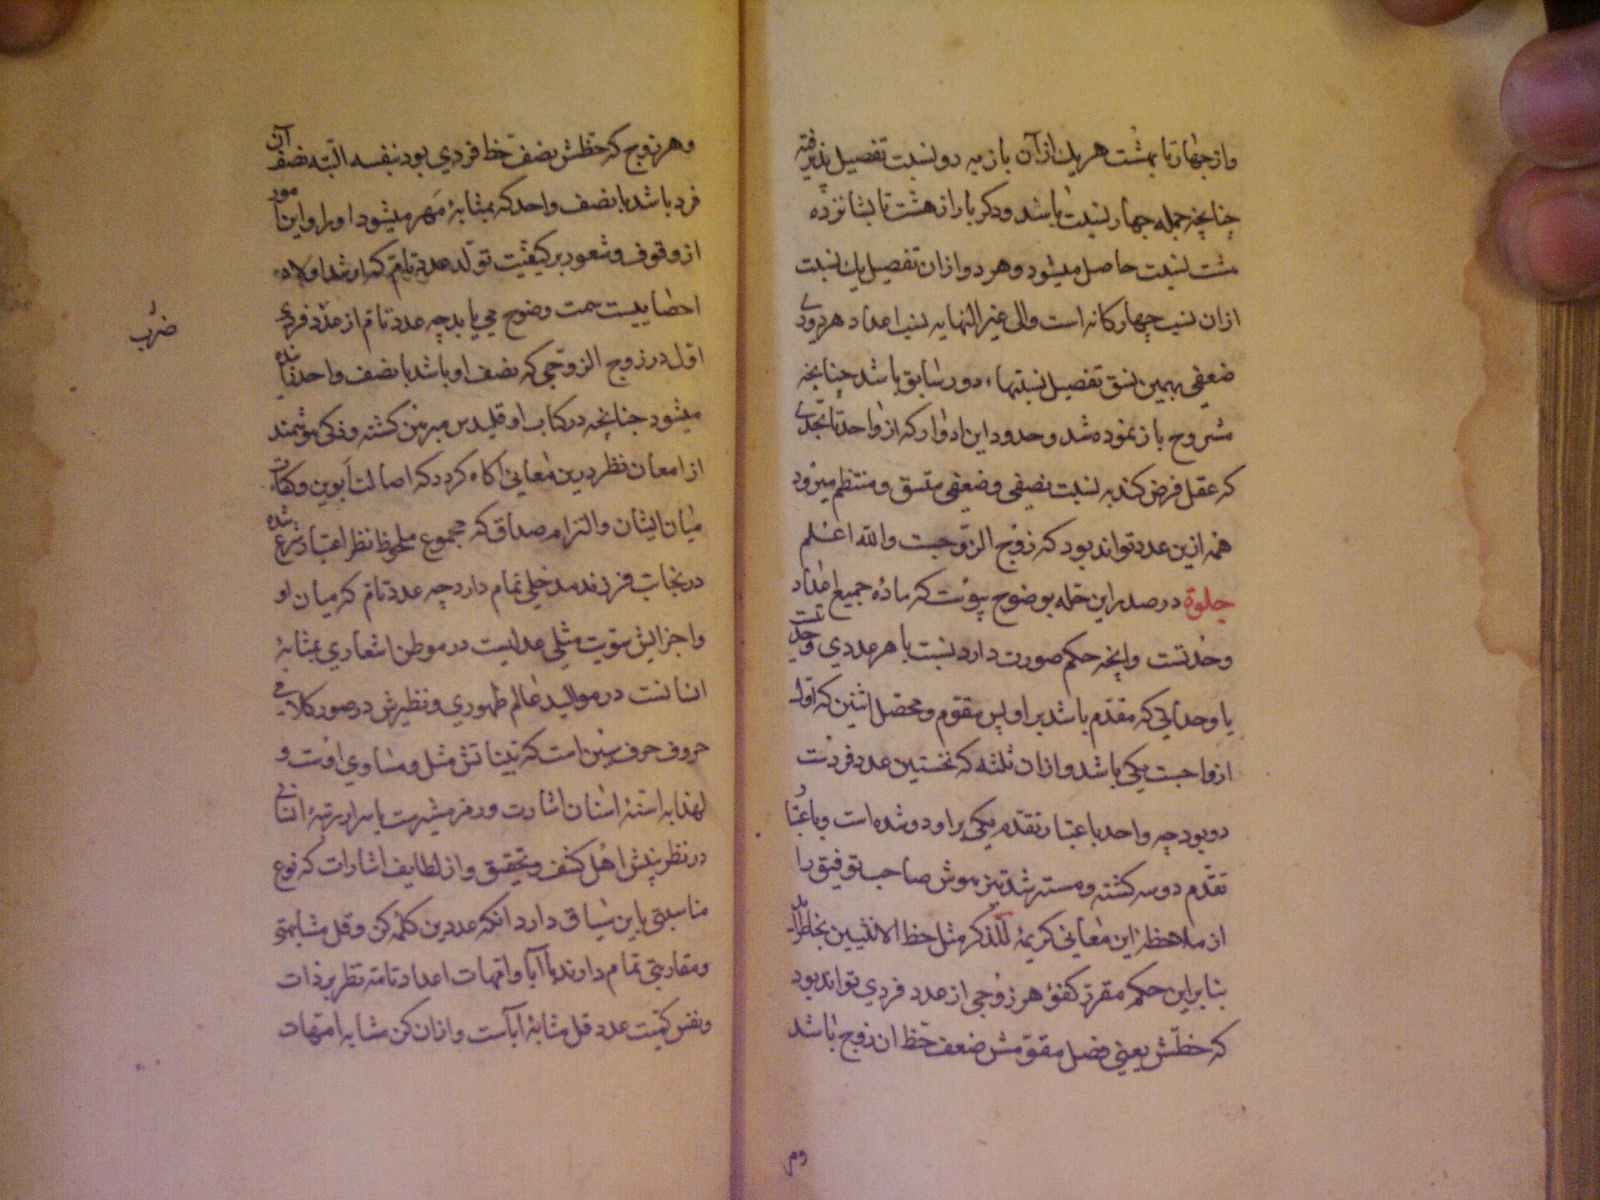 واز چهار تا بهشت هر یك از آن باز به دو نسبت تفصیل پذیرفته
چنانچه جمله چهار نسبت باشد و دکر بار از هشت تا بشانزده
هشت نسبت حاصل میشود و هر دو ازان تفصیل یك نسبت
ازان نسب چهارکانه است والی غیر النهایه نسب اعداد هر دوری
ضعفی بهمین نسق تفصیل نسبتهاء دور سابق باشد چنانچه
مشروح باز نموده شد و حدود این ادوار که از واحد تا بحدی
که عقل فرض کند به نسبت نصفی و ضعفی متسق و منتظم میرود
همه ازین عدد تواند بود که زوج الزوجست والله اعلم
جلوة در صدر این جمله بوضوح پیوست که مادهٔ جمیع اعداد
وحدتست وانچه حکم صورت دارد نسبت با هر عددی وحدتیست
یا وحداتی که مقدم باشد بر او پس مقوم و محصل اثنین که اول
ازواجست یکی باشد و ازان ثلثه که نخستین عدد فردست
دو بود چه واحد باعتبار تقدم یکی بر او دو شده است و باعتبار
تقدم دو سه کشته و مسترشد تیز هوش صاحب توفیق را
از ملاحظهٔ این معانی کریمهٔ للذکر مثل حظ الانثیین بخاطر اید
بنابراین حکم مقرر کفو هر زوجی از عدد فردی تواند بود
که حظش یعنی فضل مقومش ضعف حظ ان زوج باشد
وم
وهر زوج که حظش نصف حظ فردی بود بنفسه البته نصف آن
فرد باشد با نصف واحد که بمثابهٔ مهر میشود او را و این مور
از وقوف و شعور بر کیفیت تولد عدد تام که ارشد اولاد
احصاییست سمت وضوح می یابد چه عدد تام از عدد فردی
اول در زوج الزوجی که نصف او باشد با نصف واحد
میشود چنانچه در کتاب اوقلیدس مبرهن کشته و ذکی هوشمند
از امعان نظر درین معانی اکاه کردد که اصالت ابوین و
میان ایشان و التزام صداق که مجموع ملحوظ نظر اعتبار شرع شده
در نجابت فرزند مدخلی تمام دارد چه عدد تام که میان او
و اجزایش سویت مثلی عدلیست در موطن اشعاری بمثابهٔ
انسانست در موالید عالم ظهوری و نظیرش در صور کلامی
حروف حرف سین است که بیناتش مثل و مساوی اوست و
لهذا به استنهٔ اسنان اشارت و رمز مشیرست باسرار رتبهٔ انسانی
در نظر بینش اهل کشف و تحقیق و از لطایف اشارات که نوع
مناسبتی باین سیاق دارد انکه عددین کلمهٔ کن و قل مشابهتی
و مقاربتی تمام دارند با آبا و امهات اعداد تامه نظر بر ذات
و نفس کمیت عدد قل مشابهٔ آباست و ازان کن مشابه امهات
ضرب